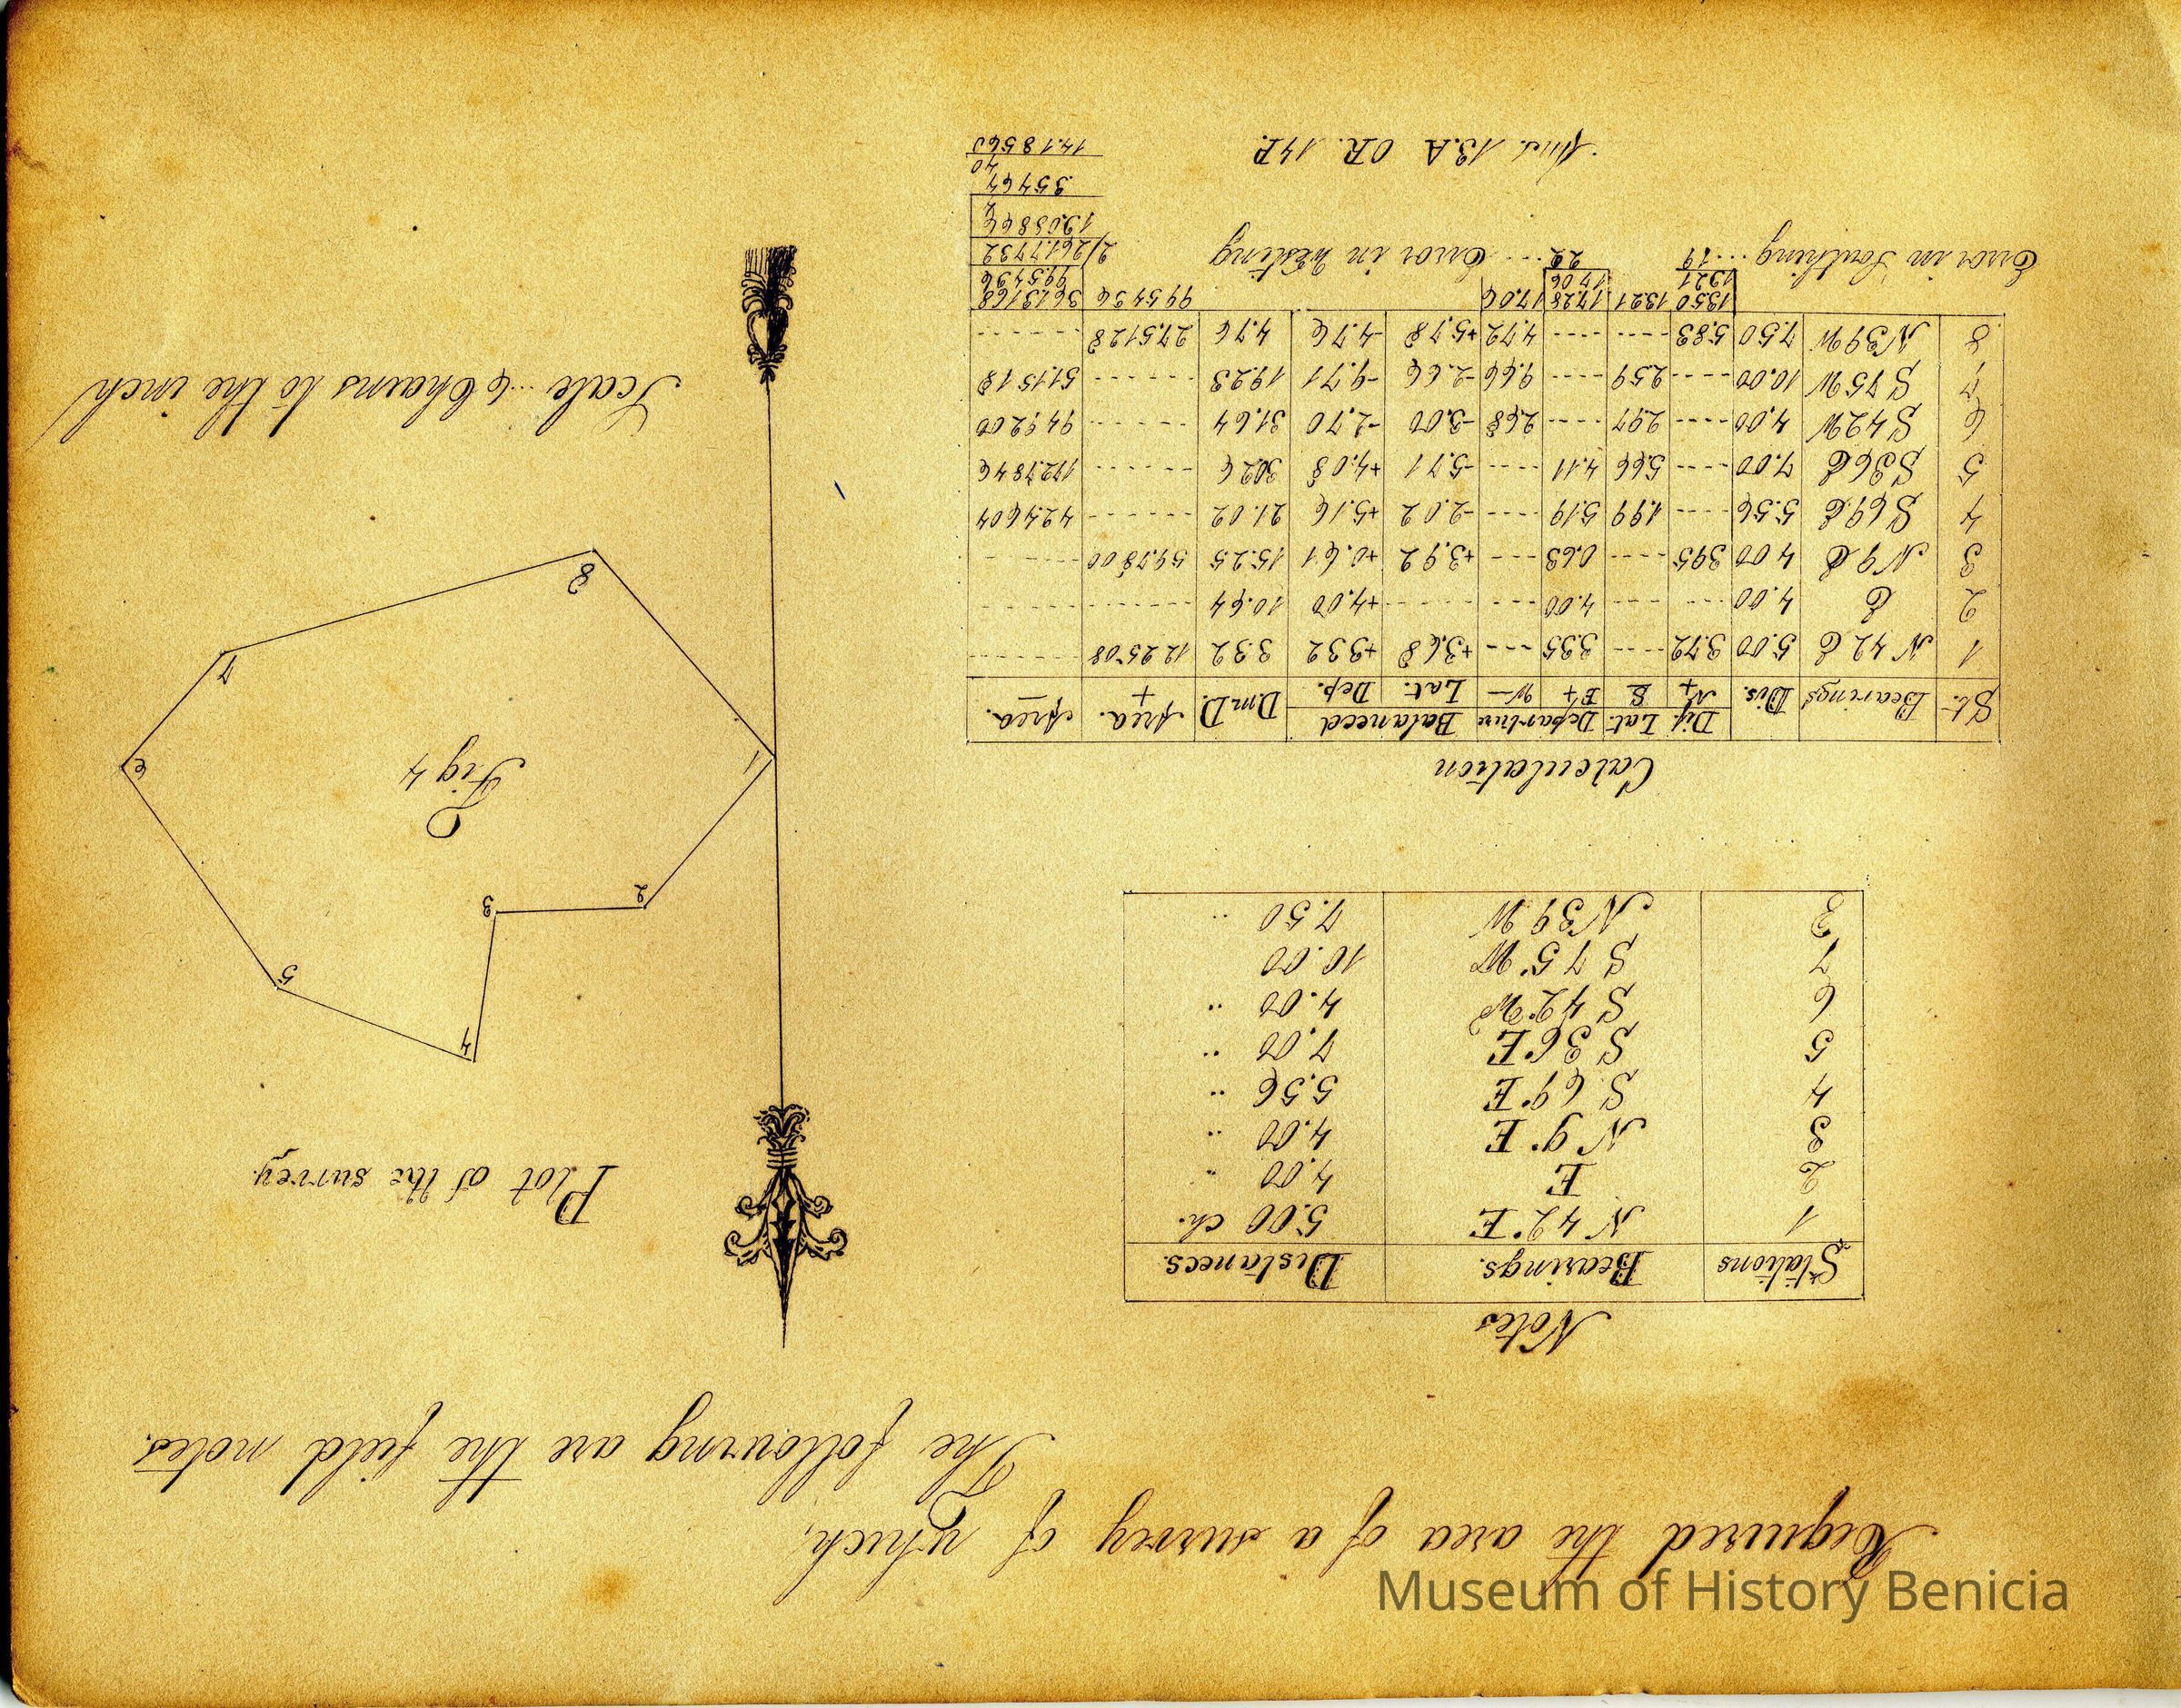 Required the area of a survey of which,
The following are the field notes.
Notes
Stations Bearings. Distances.
1 N 42° E 5.00 ch.
2 E 4.00 "
3 N 9° E 4.00 "
4 S 69° E 5.56 "
5 S 36 E 7.00 "
6 S 42° W 4.00 "
7 S 75° W 10.00
8 N 39 W 7.50 "
Plot of the survey.
4
5
3
2
Fig 4
1
6
7
8
Scale... 6 Chains to the inch
Calculation
St. Bearings Dis. Dif. Lat. Departure Balanced D.m.D. Area. Area.
N + S E + W − Lat. Dep. + −
1 N 42 E 5.00 3.72 ---- 3.35 ---- +3.68 +3.32 3.32 12.2508 ------
2 E 4.00 ---- ---- 4.00 ---- ---- +4.00 10.64 ------ ------
3 N 9 E 4.00 3.95 ---- 0.63 ---- +3.92 +0.61 15.25 59.7800 ------
4 S 69 E 5.56 ---- 1.99 5.19 ---- -2.02 +5.16 21.02 ------ 42.4604
5 S 36 E 7.00 ---- 5.66 4.11 ---- -5.71 +4.08 30.26 ------ 172.7846
6 S 42 W 4.00 ---- 2.97 ---- 2.68 -3.00 -2.70 31.64 ------ 94.9200
7 S 75 W 10.00 ---- 2.59 ---- 9.66 -2.66 -9.71 19.23 ------ 51.1518
8 N 39 W 7.50 5.83 ---- ---- 4.72 +5.78 -4.76 4.76 27.5128 ------
1350 1321 17.28 17.06 99.5436 361.3168
1321 17.06 99.5436
Error in Southing .....19 22..... Error in Westing 2/261.7732
13.08866
4
.35464
40
Ans. 13.A 0R. 14P. 14.18560
Museum of History Benicia